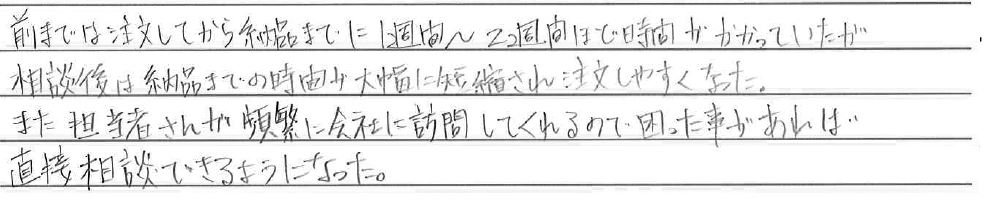 前までは注文してから納品までに1週間〜2週間ほど時間がかかっていたが
相談後は納品までの時間が大幅に短縮され注文しやすくなった。
また担当者さんが頻繁に会社に訪問してくれるので困った事があれば
直接相談できるようになった。